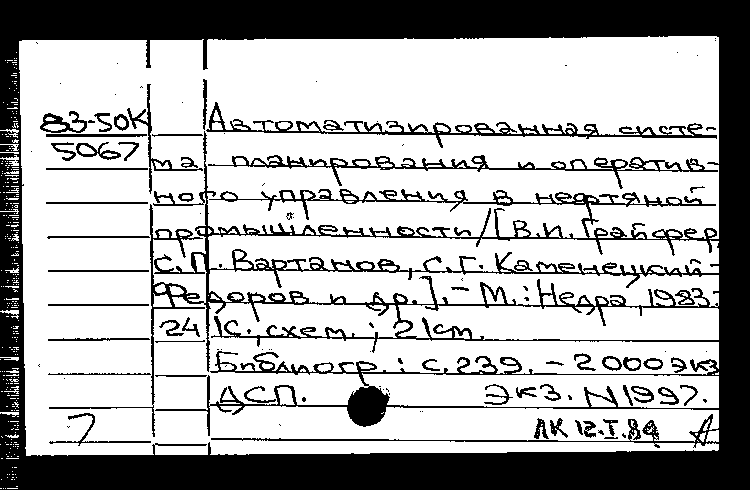 83-50К Автоматизированная систе-
5067 ма планирования и оператив-
ного управления в нефтяной
промышленности/[В.И. Грайфер,
С.П. Вартанов, С.Г. Каменецкий-
Федоров и др.].- М.: Недра, 1983.
24 1с., схем.; 21см.
Библиогр.: с.239. - 2000 экз
ДСП. Экз. N1997.
7 ЛК 12.I.84 А